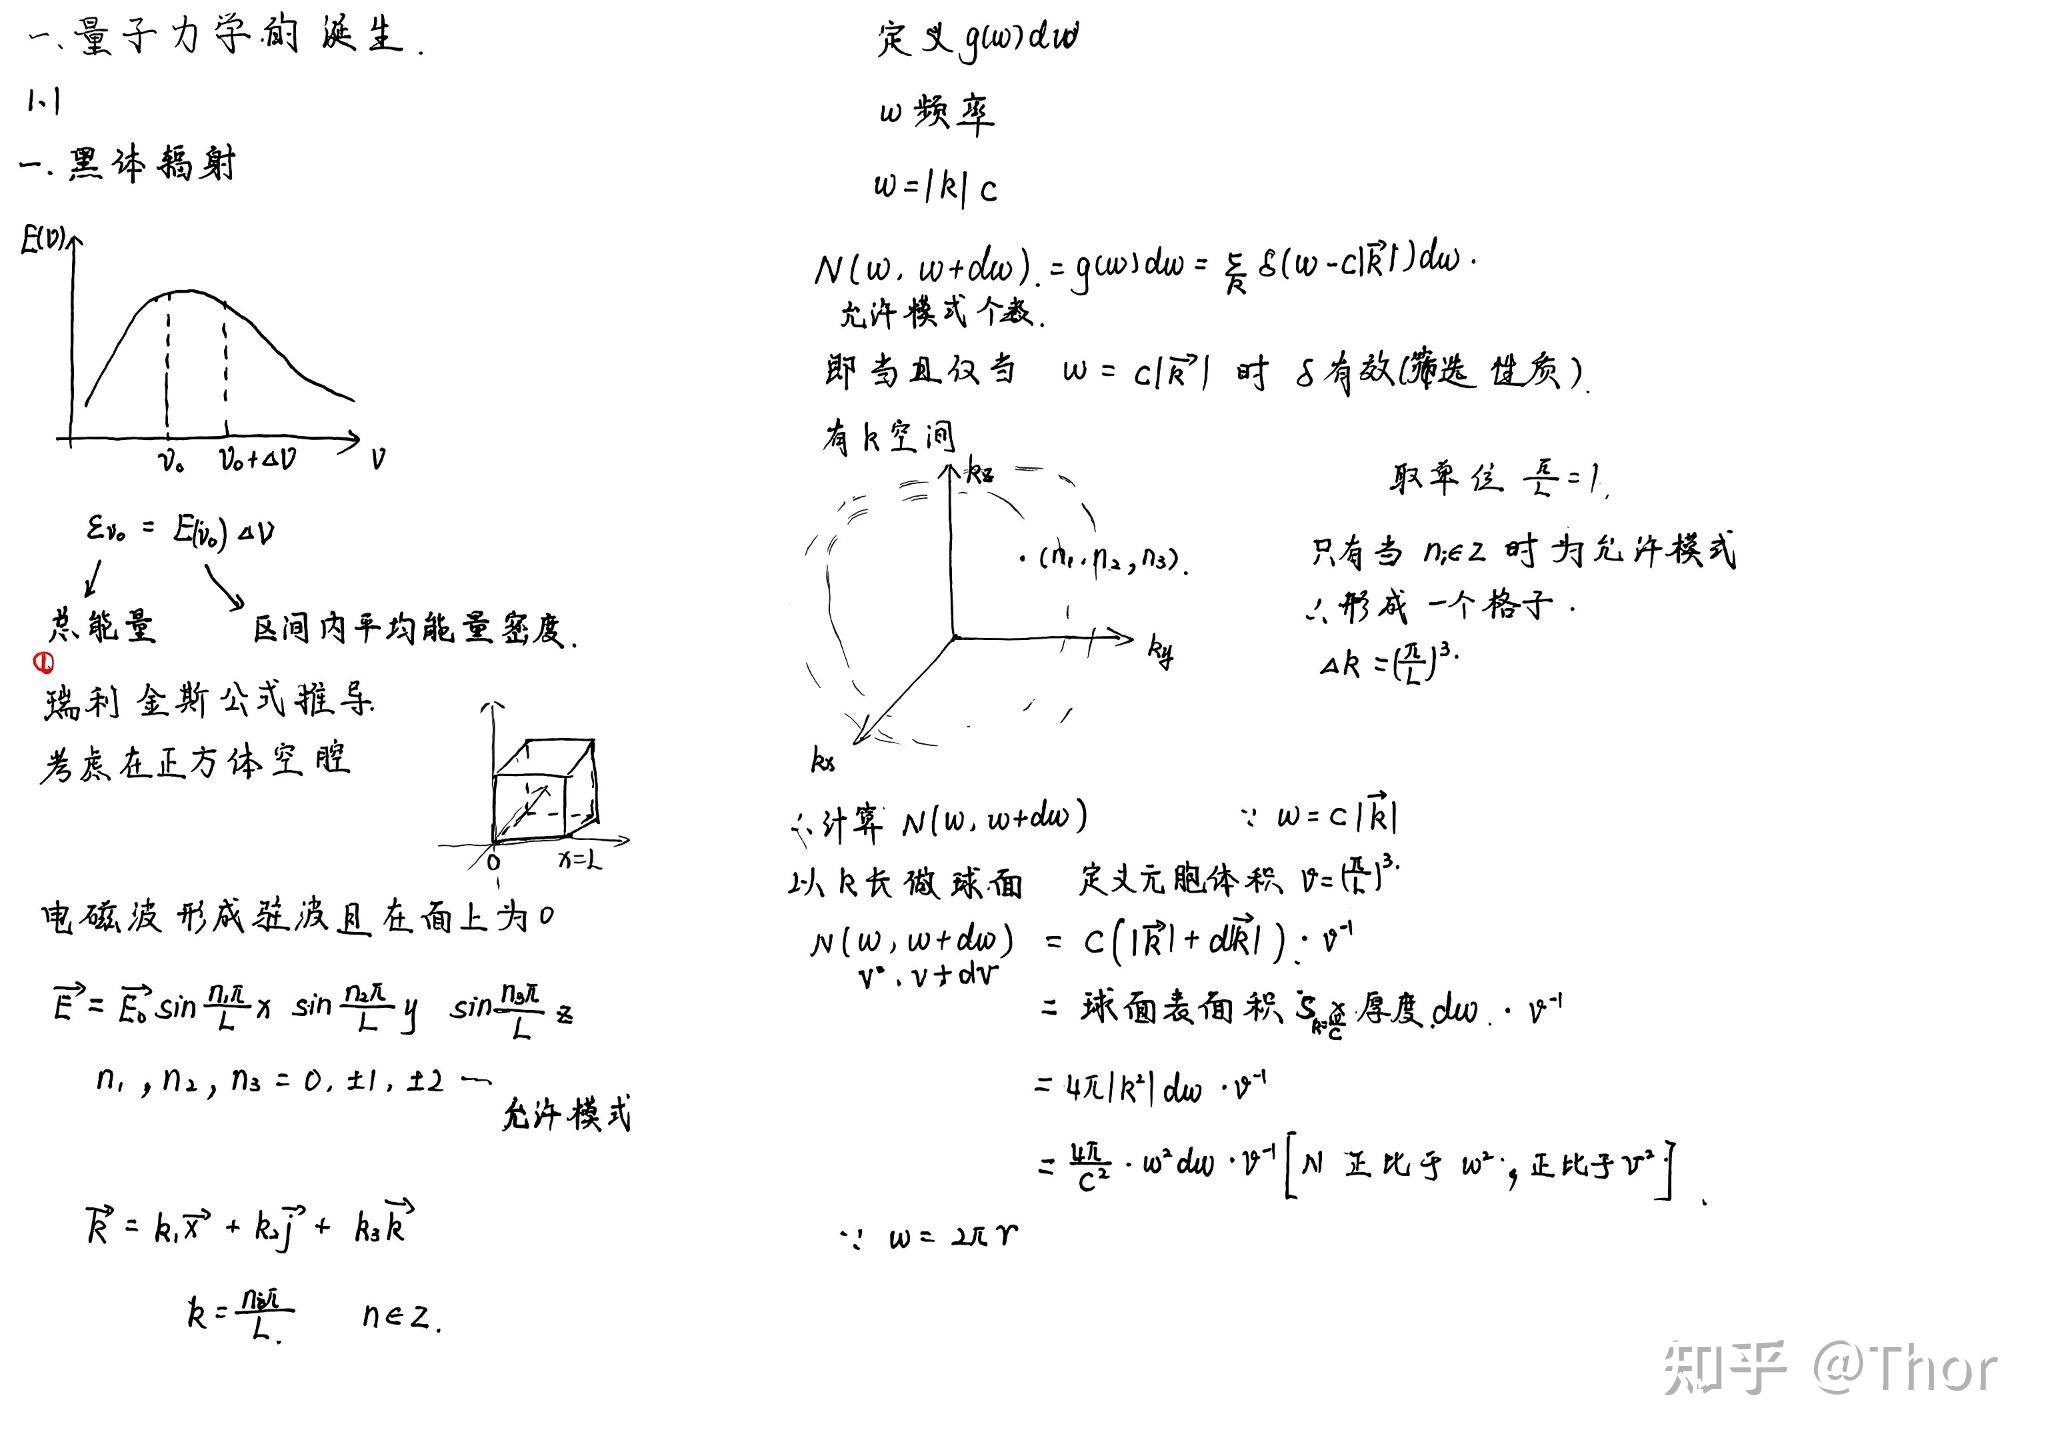 一、量子力学的诞生.
1.1
一.黑体辐射
E(ν)
ν₀ ν₀+Δν ν
ε_ν₀ = E(ν₀) Δν
总能量 区间内平均能量密度.
①
瑞利金斯公式推导.
考虑在正方体空腔
0 x=L
电磁波形成驻波且在面上为0
E⃗ = E⃗₀ sin n₁π/L x sin n₂π/L y sin n₃π/L z
n₁, n₂, n₃ = 0, ±1, ±2 …
允许模式
k⃗ = k₁x⃗ + k₂j⃗ + k₃k⃗
k = nᵢπ/L. n∈Z.
定义 g(ω)dω
ω 频率
ω = |k| c
N(ω, ω+dω). = g(ω)dω = Σ_k δ(ω-c|k⃗|)dω.
允许模式个数.
即当且仅当 ω = c|k⃗| 时 δ有效(筛选性质).
有k空间
kz
取单位 π/L = 1.
·(n₁, n₂, n₃).
只有当 nᵢ∈Z 时为允许模式
∴形成一个格子.
ky
Δk = (π/L)³.
kx
∴计算 N(ω, ω+dω) ∵ ω = c|k⃗|
以k长做球面 定义元胞体积 v = (π/L)³.
N(ω, ω+dω) = c(|k⃗| + d|k⃗|)·v⁻¹
ν, ν+dν
= 球面表面积 S_{k=ω/c} 厚度 dω · v⁻¹
= 4π|k²| dω · v⁻¹
= 4π/c² · ω²dω · v⁻¹ [N 正比于 ω², 正比于 ν²].
∵ ω = 2πν
知乎 @Thor